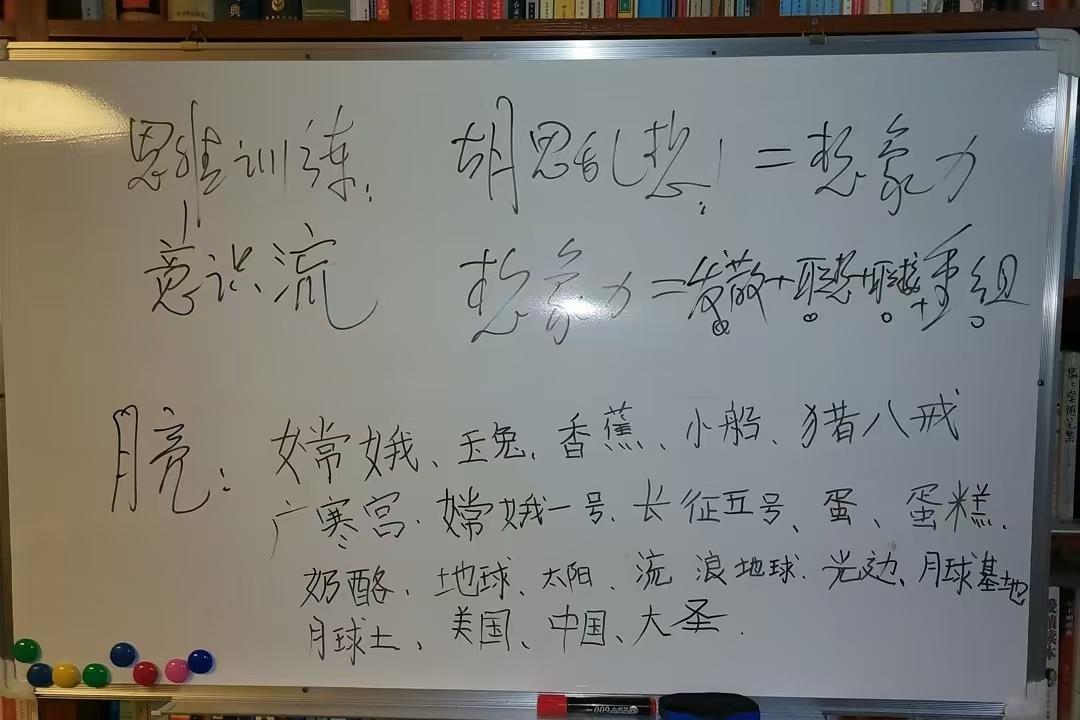 思维训练： 胡思乱想！＝想象力
意识流 想象力＝发散＋联想＋联接＋重组
月亮：嫦娥、玉兔、香蕉、小船、猪八戒
广寒宫、嫦娥一号、长征五号、蛋、蛋糕、
奶酪、地球、太阳、流浪地球、光边、月球基地
月球土、美国、中国、大圣．